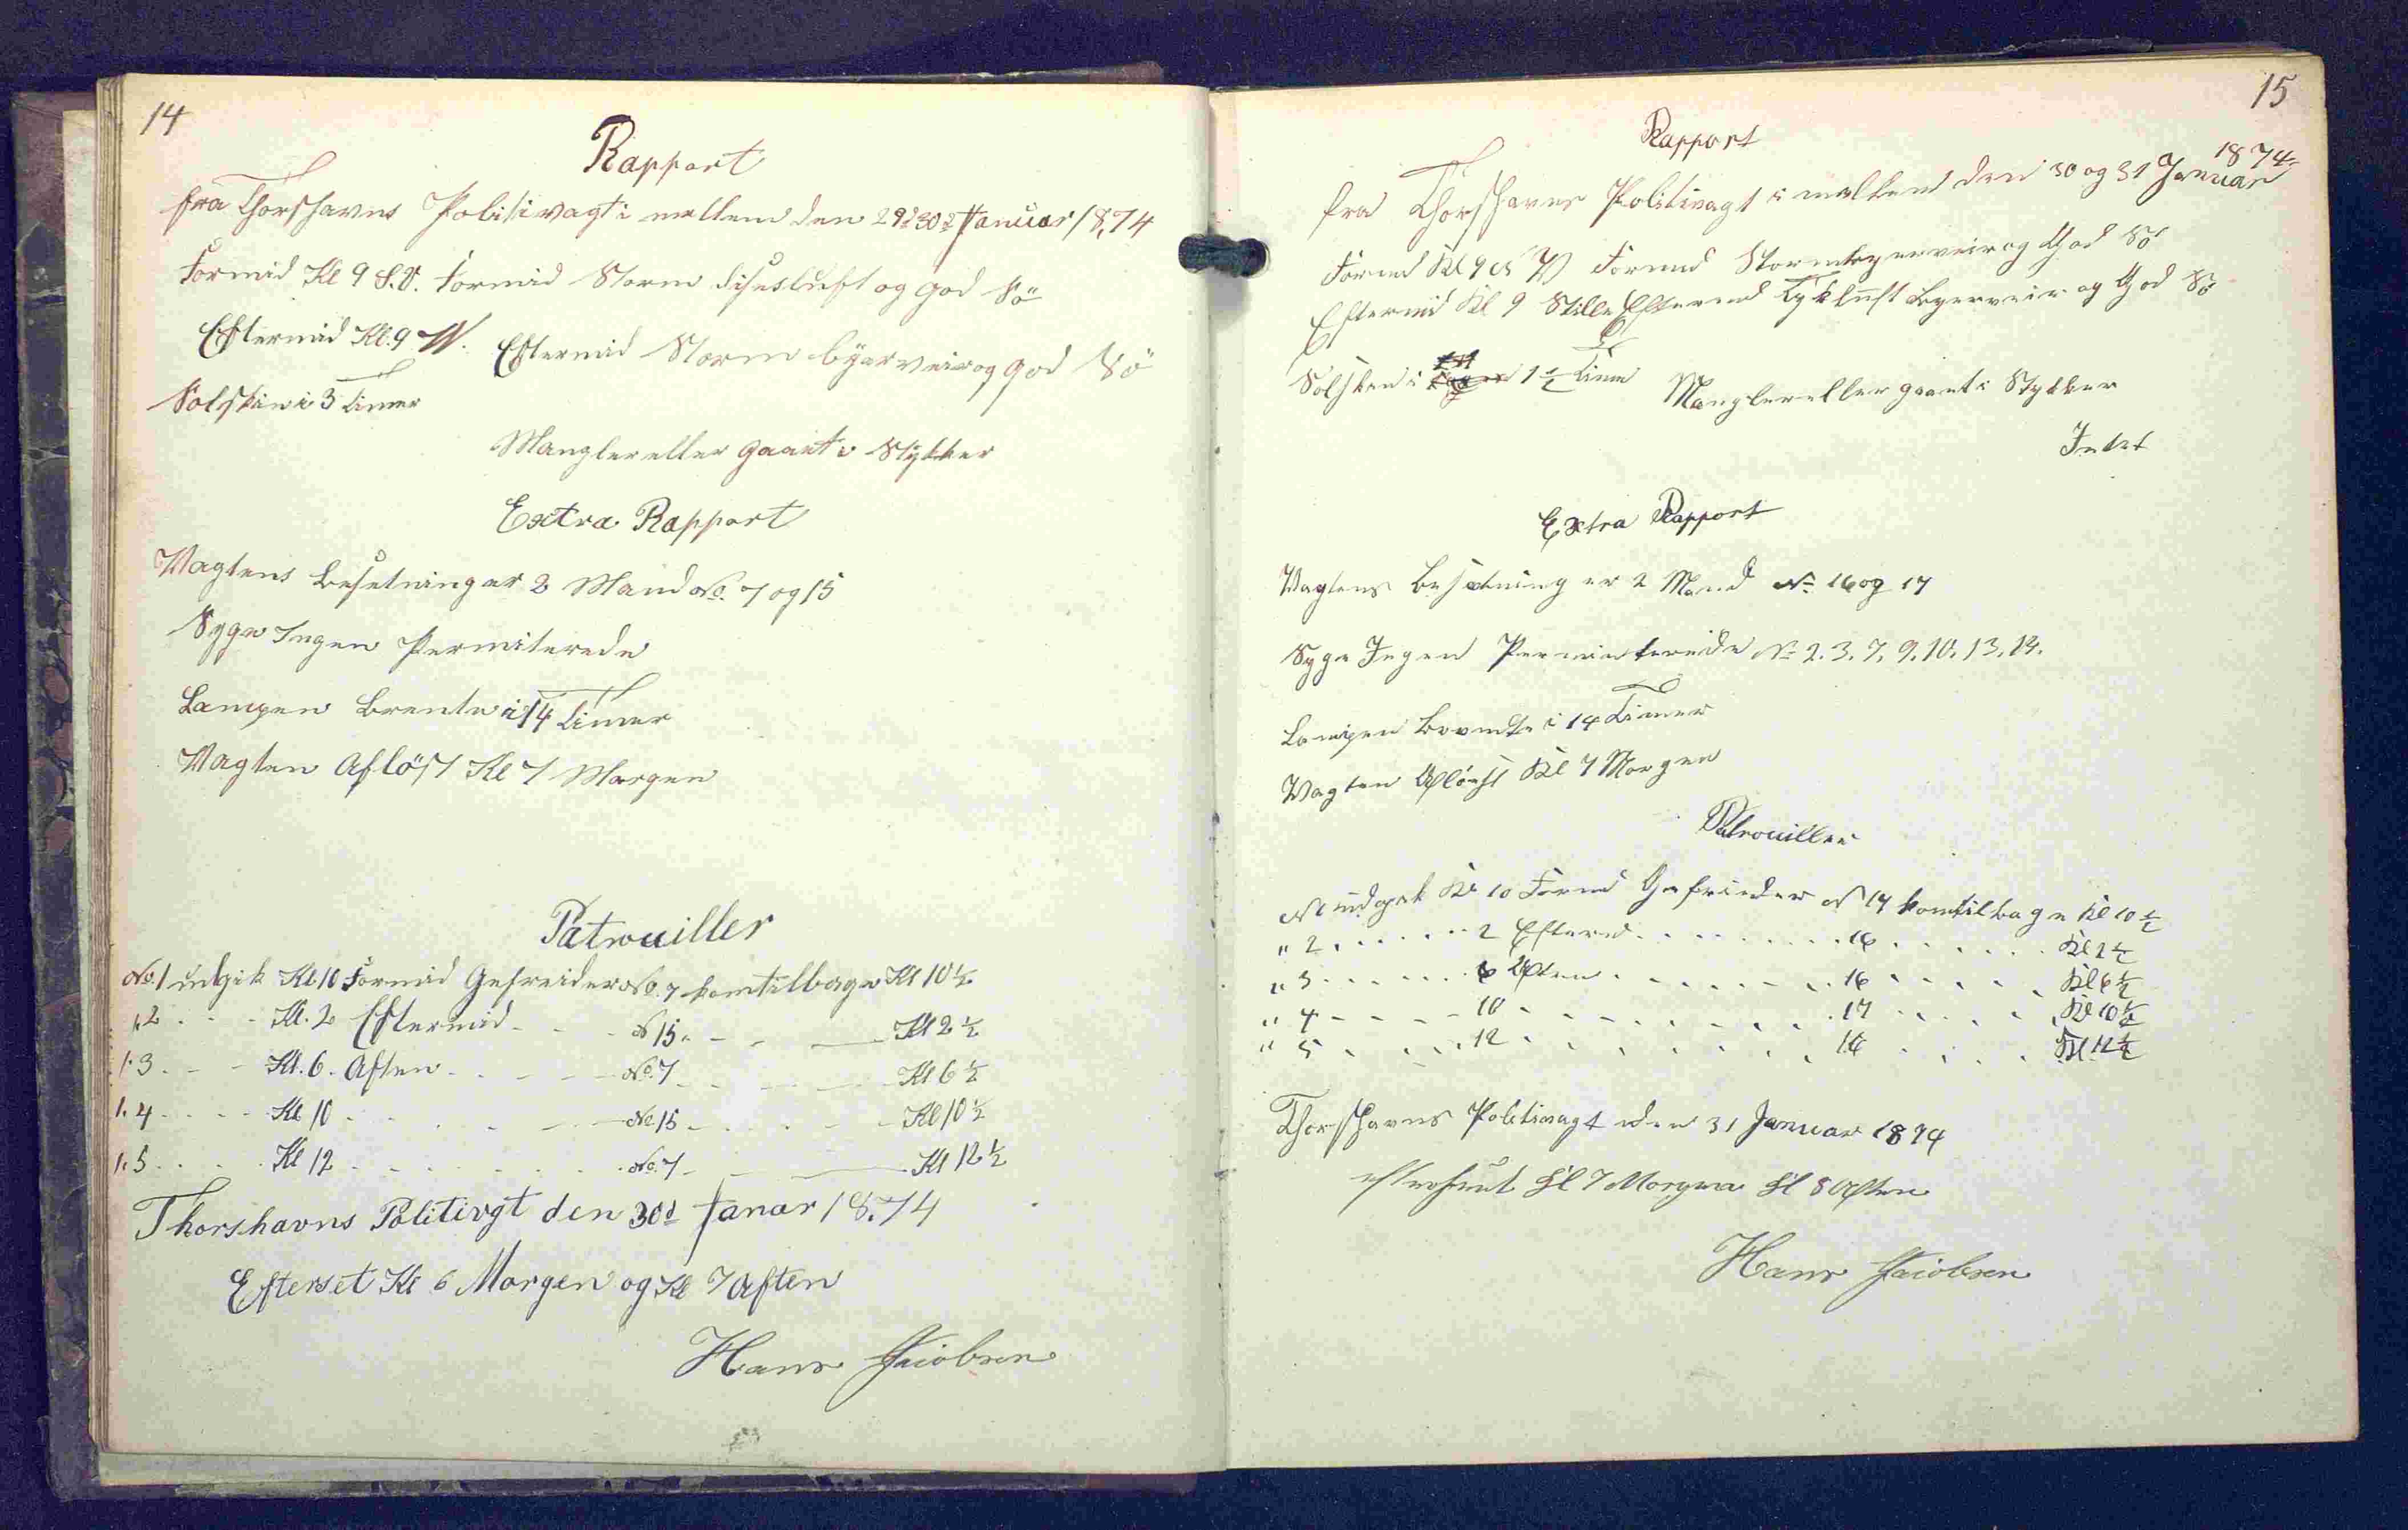 14
Rapport
fra Thorshavns Politivagt i mellem den 29d 30d Januar 1874
Formid Kl 9 S.V. Formid Storm Disesluft og god Sö
Eftermid Kl. 9 W. Eftermid Storm byerveir og god Sö
Solskin i 3 Timer
Mangler eller gaaet i Stykker
Extra Rapport
Vagtens Besetning er 2 Mand No. 7 og 15
Syge Ingen Permiterede
Lampen Brente i 14 Timer
Vagten Aflöst Kl 7 Morgen
Patrouiller
No. 1 udgik Kl 10 Formid Gefreider No. 7 kom tilbage Kl 10 1/2
" 2 - - - Kl. 2 Eftermid - - - N 15 - - - Kl 2 1/2
" 3 - - - Kl. 6. Aften - - - No. 7 - - - Kl 6 1/2
" 4 - - - Kl 10 - - - No 15 - - - Kl 10 1/2
" 5 - - - Kl 12 - - - No. 7 - - - Kl 12 1/2
Thorshavns Politivgt den 30d Janar 1874
Efterset Kl 6 Morgen og Kl 7 Aften
Hans Jacobsen
15
Rapport
1874
fra Thorshavns Politivagt i mellem den 30 og 31 Januar
Formd Kl 9 N V Formd Storm byerveir og God Sö
Eftermid Kl 9 Stille Eftermd Tykluft Byerveir og God Sö
Solsken i 1 1/2 Time
Mangler eller gaaet i Stykker
Intet
Extra Rapport
Vagtens Besetning er 2 Mand No 16 og 17
Syge Ingen Permiterede No 2. 3. 7. 9. 10. 13. 14.
Lampen Brendte i 14 Timer
Vagten Aflöest Kl 7 Morgen
Patrouiller
N 1 udgek Kl 10 Formd Gefreider N 17 kom tilbage Kl 10 1/2
" 2 . . . . . . 2 Eftermd . . . . . . 16 . . . . . . Kl 2 1/2
" 3 . . . . . . 6 Aften . . . . . . 16 . . . . . . Kl 6 1/2
" 4 - - - 10 . . . . . . 17 . . . . . . Kl 10 1/2
" 5 . . . . . . 12 . . . . . . 16 . . . . . . Kl 12 1/2
Thorshavns Politivagt den 31 Januar 1874
Kl 7 Morgen Kl 8 Aften
Hans Jacobsen